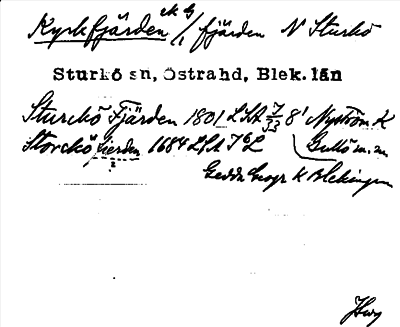 Kyrkfjärden ek G // fjärden N Sturkö
Sturkö sn, Östra hd, Blek. län
Sturckö Fjärden 1801 LSA 7/33 8' Nyström K
Storckö fierden 1684 LSA T6L Gullö m.m.
Gedda Geogr K Blekingen